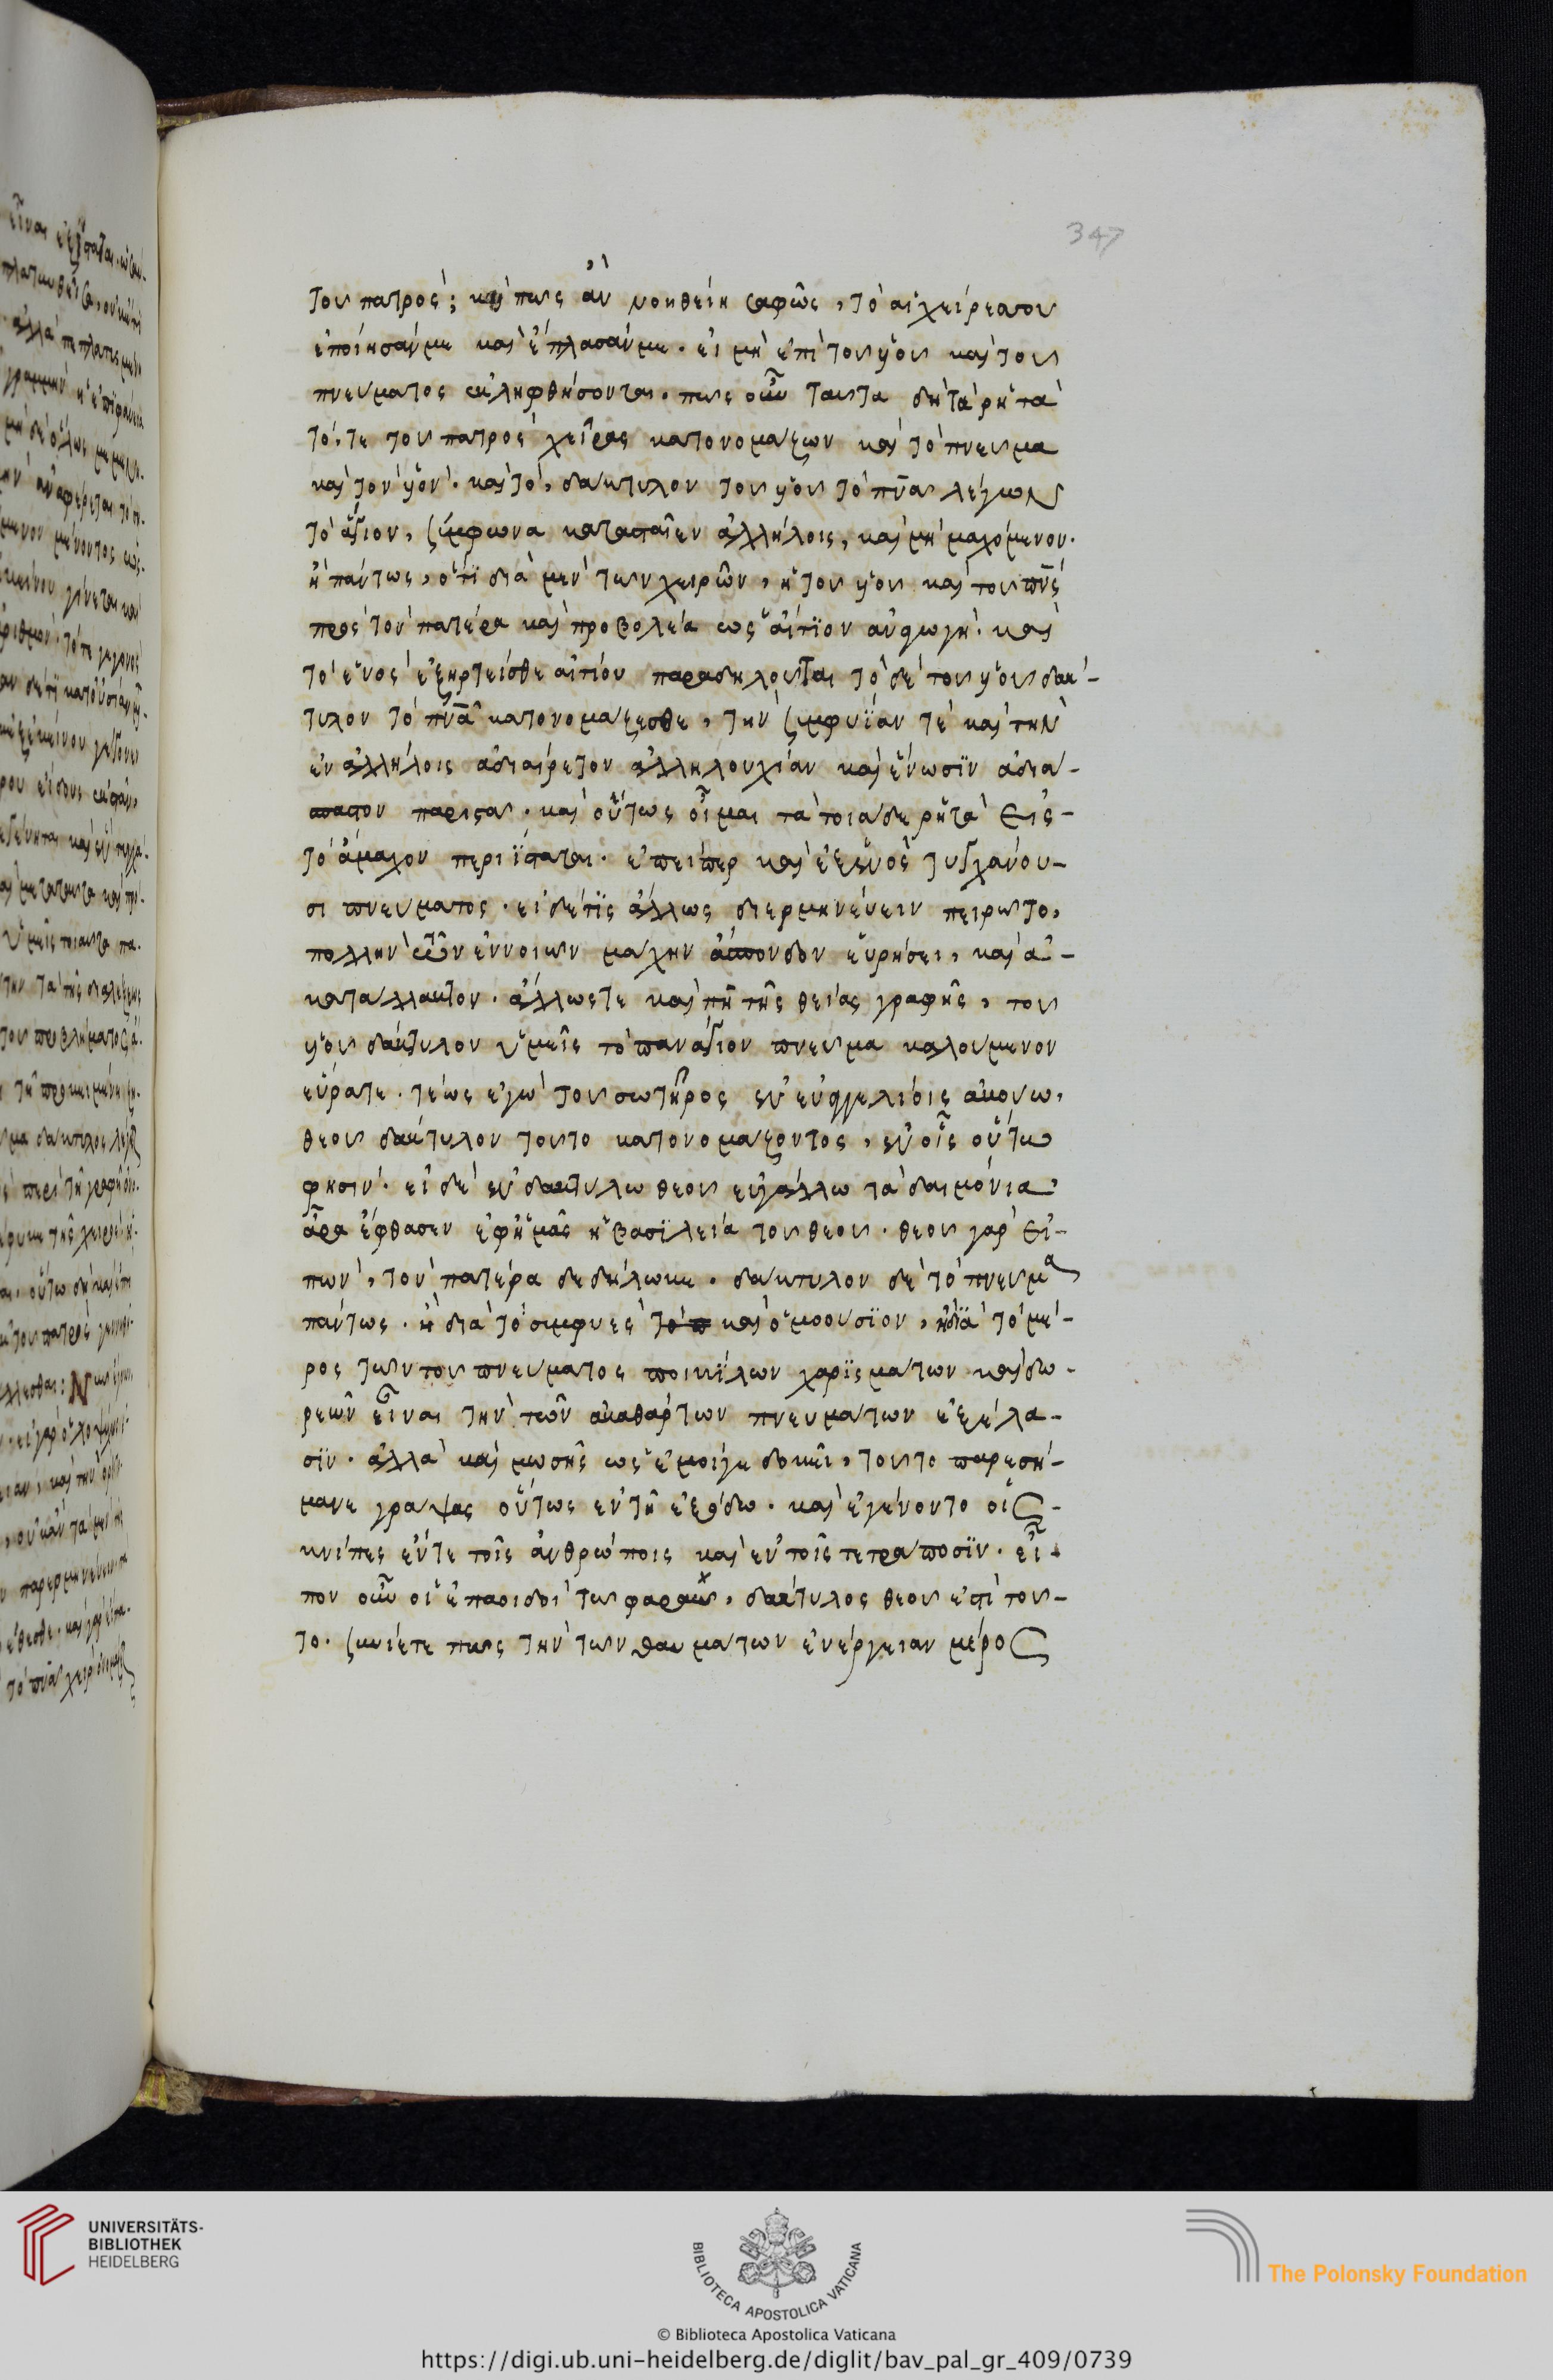 347
τοῦ πατρὸς; καὶ πῶς ἂν νοηθείη σαφῶς, τὸ αἱ χεῖρες σου
ἐποίησάν με καὶ ἔπλασάν με. εἰ μὴ ἐπὶ τοῦ υἱοῦ καὶ τοῦ
πνεύματος ἐκληφθήσονται. πῶς οὖν ταῦτα δὴ τὰ ῥητὰ
τό, τε τοῦ πατρὸς χεῖρας κατονομάζων καὶ τὸ πνεῦμα
καὶ τὸν υἱὸν. καὶ τὸ, δάκτυλον τοῦ υἱοῦ τὸ πνα λέγων
τὸ ἅγιον, σύμφωνα κατασταῖεν ἀλλήλοις, καὶ μὴ μαχόμενον.
ἢ πάντως, ὅτι διὰ μὲν τῶν χειρῶν, ἡ τοῦ υἱοῦ καὶ τοῦ πνς
πρὸς τὸν πατέρα καὶ προβολέα ὡς αἴτιον ἀναγωγὴ. καὶ
τὸ ἑνὸς ἐξηρτεῖσθε αἰτίου παραδηλοῦται τὸ δὲ τοῦ υἱοῦ δάκ-
τυλον τὸ πνα κατονομάζεσθε, τὴν συμφυΐαν τὲ καὶ τὴν
ἐν ἀλλήλοις ἀδιαίρετον ἀλληλουχίαν καὶ ἕνωσιν ἀδιά-
σπαστον παριστᾶ. καὶ οὕτως οἶμαι τὰ τοιάδε ῥητὰ εἰς-
τὸ ἄμαχον περιΐσταται. ἐπείπερ καὶ ἐξ ἑνὸς τυγχάνου-
σι πνεύματος. εἰ δέ τις ἄλλως διερμηνεύειν πειρῶτο,
πολλὴν τῶν ἐννοιῶν μάχην ἄσπονδον εὑρήσει, καὶ ἀ-
κατάλλακτον. ἄλλως τε καὶ πῆ τῆς θείας γραφῆς, τοῦ
υἱοῦ δάκτυλον ὑμεῖς τὸ πανάγιον πνεῦμα καλούμενον
εὕρατε. τέως ἐγὼ τοῦ σωτῆρος ἐν εὐαγγελίοις ἀκούω,
θεοῦ δάκτυλον τοῦτο κατονομάζοντος, ἐν οἷς οὕτω
φησὶν. εἰ δὲ ἐν δακτύλω θεοῦ ἐκβάλλω τὰ δαιμόνια
ἆρα ἔφθασεν ἐφ ἡμᾶς ἡ βασιλεία τοῦ θεοῦ. θεοῦ γὰρ εἰ-
πὼν, τὸν πατέρα δεδήλωκε. δάκτυλον δὲ τὸ πνεῦμα
πάντως. ἢ διὰ τὸ συμφυὲς τὸ π καὶ ὁμοούσιον, ἢ διὰ τὸ μέ-
ρος τῶν τοῦ πνεύματος ποικίλων χαρισμάτων καὶ δω-
ρεῶν εἶναι τὴν τῶν ἀκαθάρτων πνευμάτων ἐξέλα-
σιν. ἀλλὰ καὶ μωσῆς ὡς ἔμοιγε δοκεῖ, τοῦτο παρεσή-
μανε γράψας οὕτως ἐν τῆ ἐξόδω. καὶ ἐγένοντο οἱ σ-
κνίπες ἔν τε τοῖς ἀνθρώποις καὶ ἐν τοῖς τετράποσιν. εἶ-
πον οὖν οἱ ἐπαοιδοὶ τῶ φαραὼ, δάκτυλος θεοῦ ἐστὶ τοῦ-
το. συνίετε πῶς τὴν τῶν θαυμάτων ἐνέργειαν μέρος
UNIVERSITÄTS-
BIBLIOTHEK
HEIDELBERG
BIBLIOTECA APOSTOLICA VATICANA
The Polonsky Foundation
© Biblioteca Apostolica Vaticana
https://digi.ub.uni-heidelberg.de/diglit/bav_pal_gr_409/0739